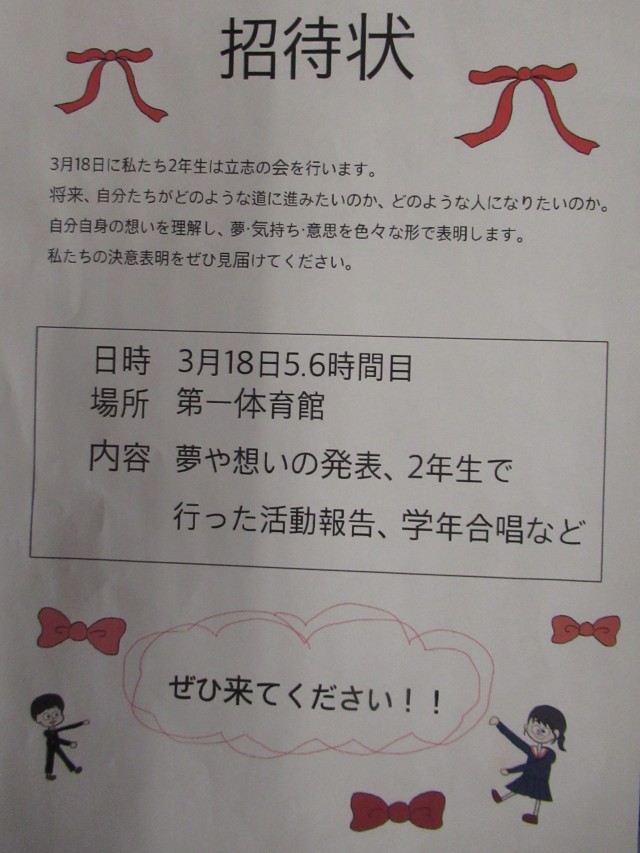 招待状
3月18日に私たち2年生は立志の会を行います。
将来、自分たちがどのような道に進みたいのか、どのような人になりたいのか。
自分自身の想いを理解し、夢・気持ち・意思を色々な形で表明します。
私たちの決意表明をぜひ見届けてください。
日時 3月18日5.6時間目
場所 第一体育館
内容 夢や想いの発表、2年生で
行った活動報告、学年合唱など
ぜひ来てください！！